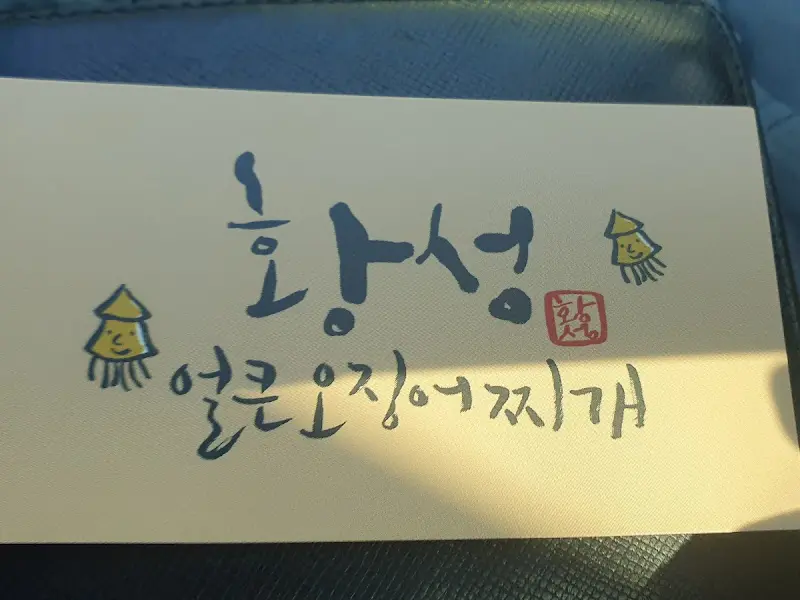 황성
황성
얼큰오징어찌개